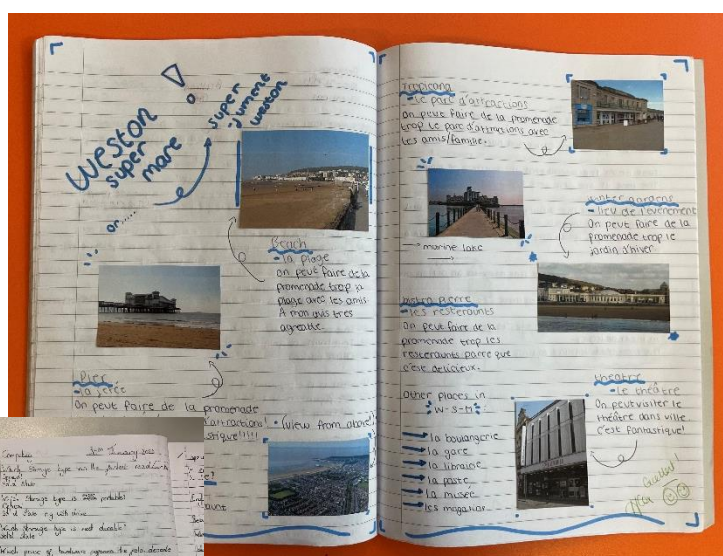 Weston
super
mare
or.....
super
jument
weston
Beach
- la plage
On peut faire de la
promenade trop la
plage avec les amis.
A mon avis tres
agreable.
Pier
- la jetée
On peut faire de la promenade
d'attractions!
stique!!!!!
(view from above!)
Tropicana
- le parc d'attractions
On peut faire de la promenade
trop le parc d'attractions avec
les amis/famille.
→ marine lake
winter gardens
- lieu de l'evenement
On peut faire de la
promenade trop le
jardin d'hiver.
bistro pierre
- les resteraunts
On peut faire de la
promenade trop les
resteraunts parce que
c'est delicieux.
Other places in
W-S-M
→ la boulangerie
→ la gare
→ la librairie
→ la poste
→ la musée
→ les magasins
theatre
- le théâtre
On peut visiter le
théâtre dans ville
c'est fantastique!
Excellent!
Computing
Which storage type is not durable?
solid state